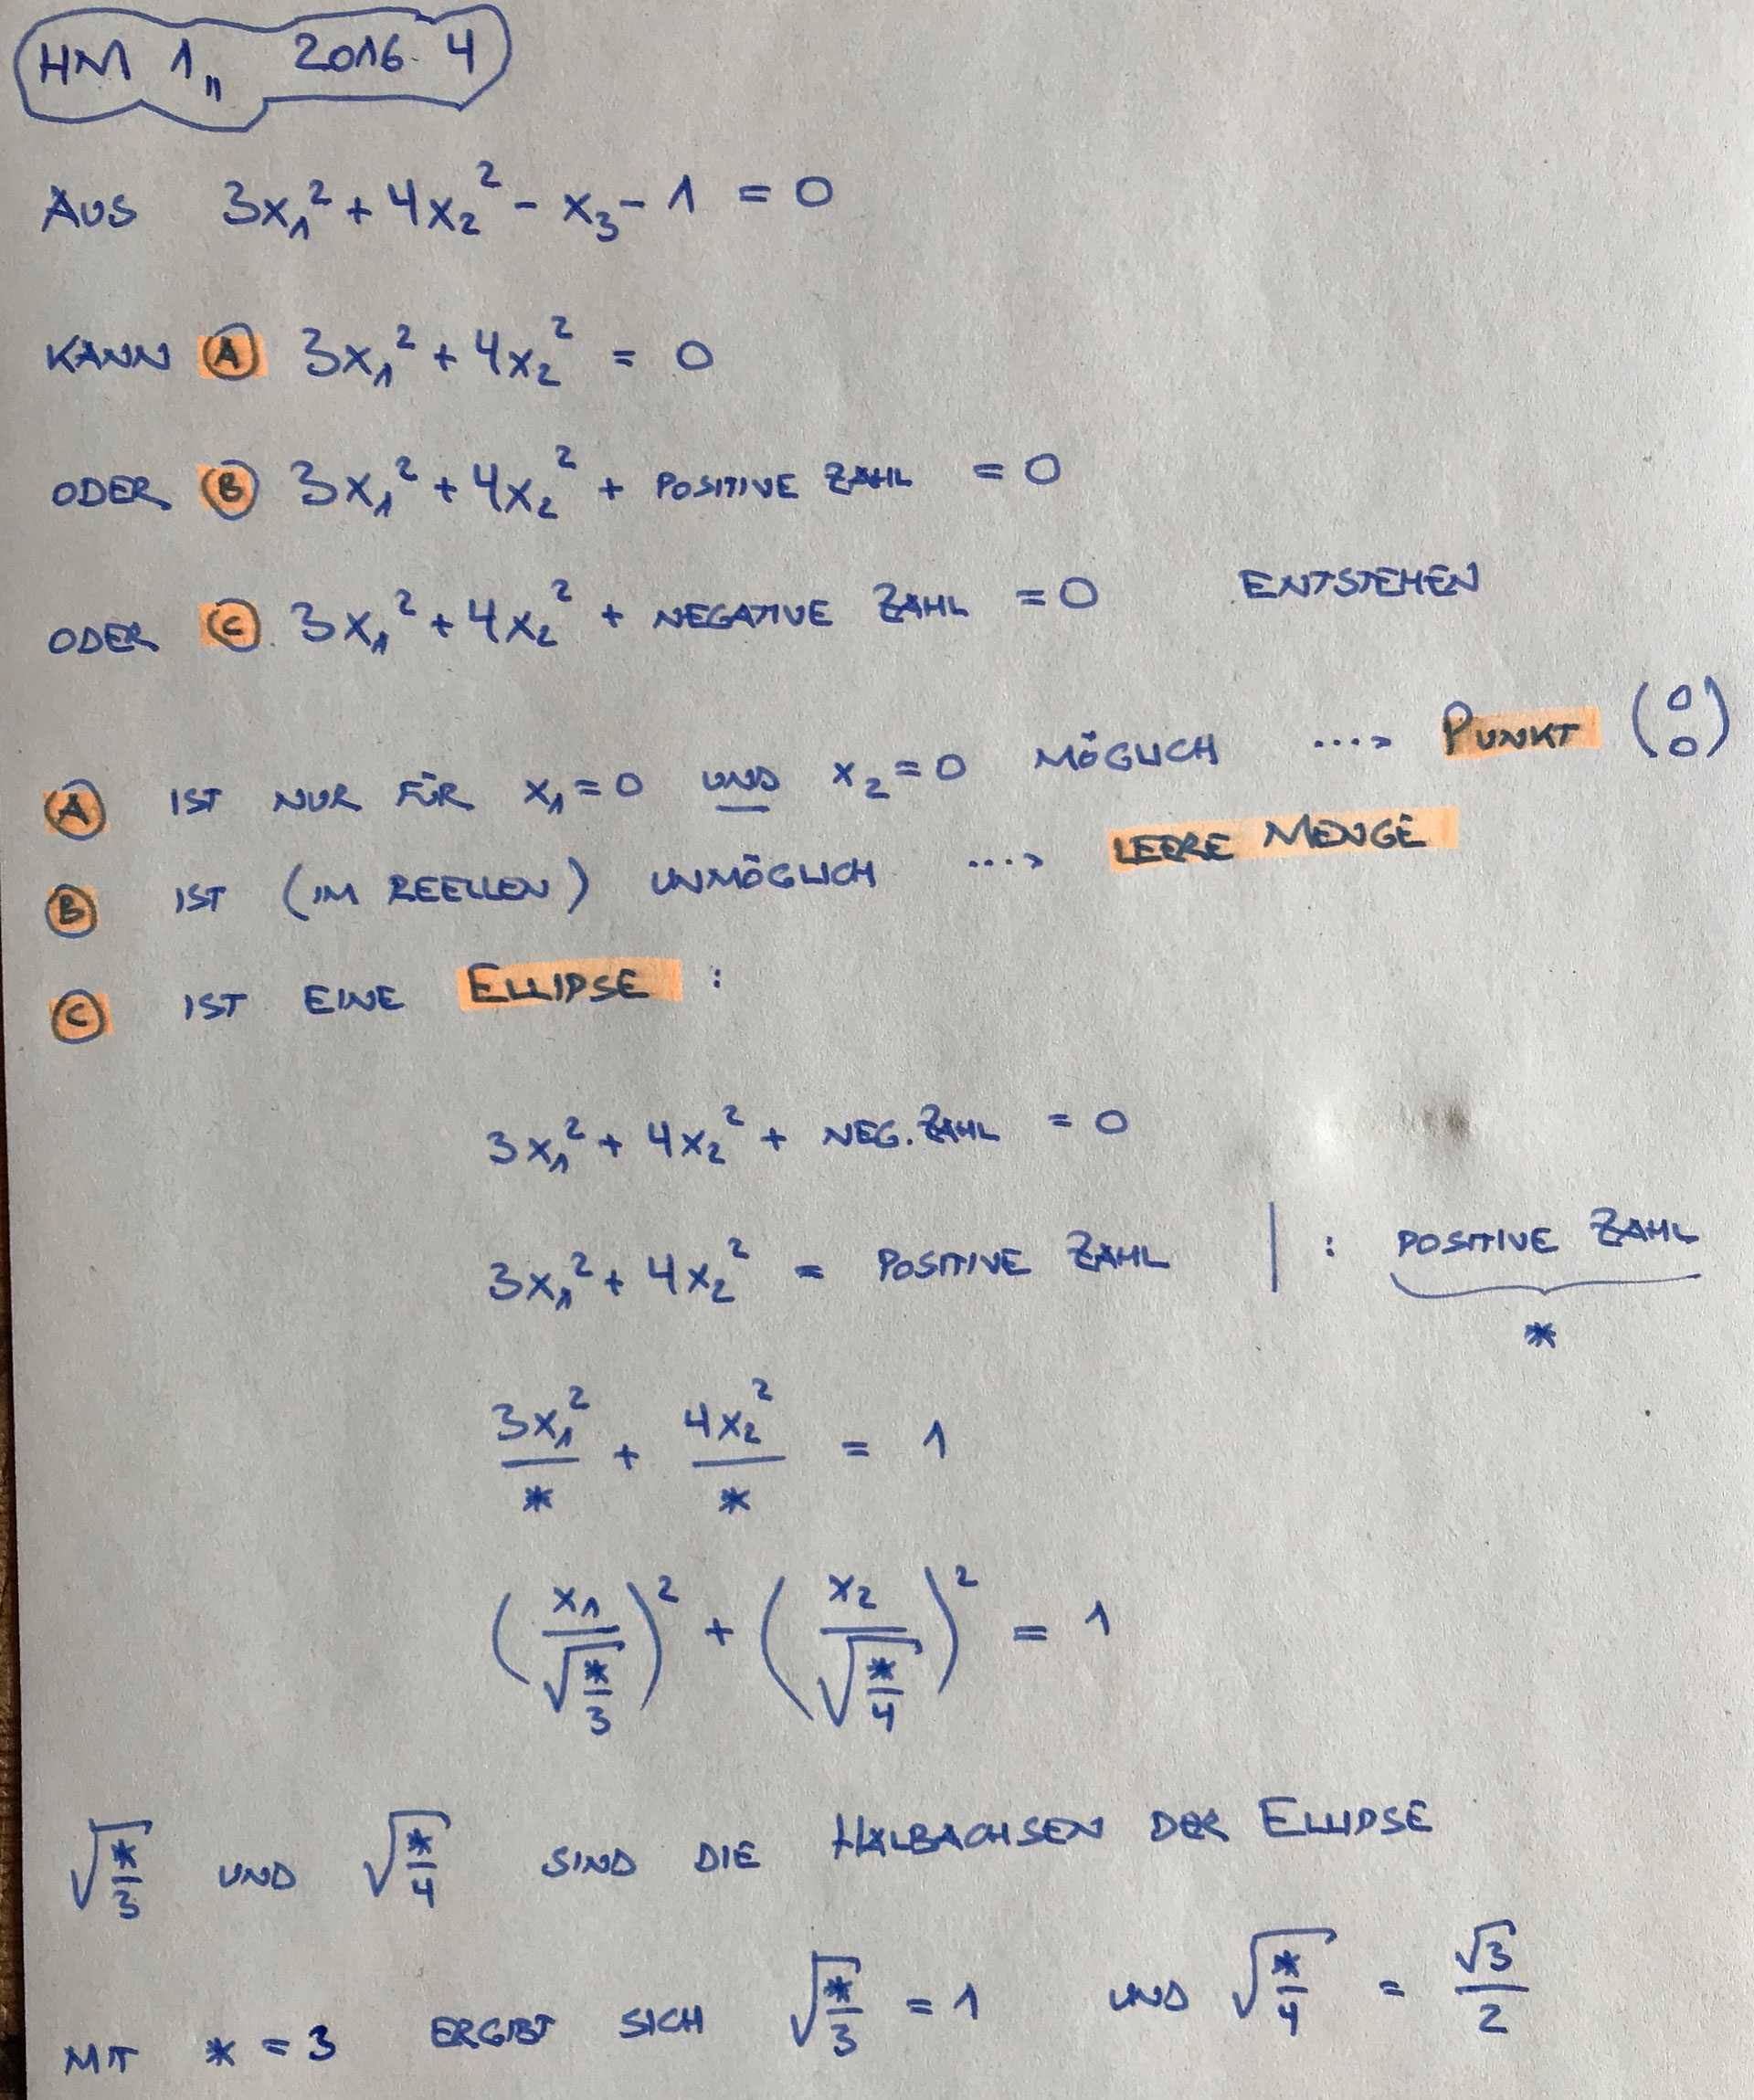 HM 1,, 2016. 4
AUS 3x₁² + 4x₂² - x₃ - 1 = 0
KANN (A) 3x₁² + 4x₂² = 0
ODER (B) 3x₁² + 4x₂² + POSITIVE ZAHL = 0
ODER (C) 3x₁² + 4x₂² + NEGATIVE ZAHL = 0 ENTSTEHEN
(A) IST NUR FÜR x₁ = 0 UND x₂ = 0 MÖGLICH ...> PUNKT (0 0)
(B) IST (IM REELLEN) UNMÖGLICH ...> LEERE MENGE
(C) IST EINE ELLIPSE :
3x₁² + 4x₂² + NEG. ZAHL = 0
3x₁² + 4x₂² = POSITIVE ZAHL | : POSITIVE ZAHL
*
3x₁²/* + 4x₂²/* = 1
(x₁/√(*/3))² + (x₂/√(*/4))² = 1
√(*/3) UND √(*/4) SIND DIE HALBACHSEN DER ELLIPSE
MIT * = 3 ERGIBT SICH √(*/3) = 1 UND √(*/4) = √3/2